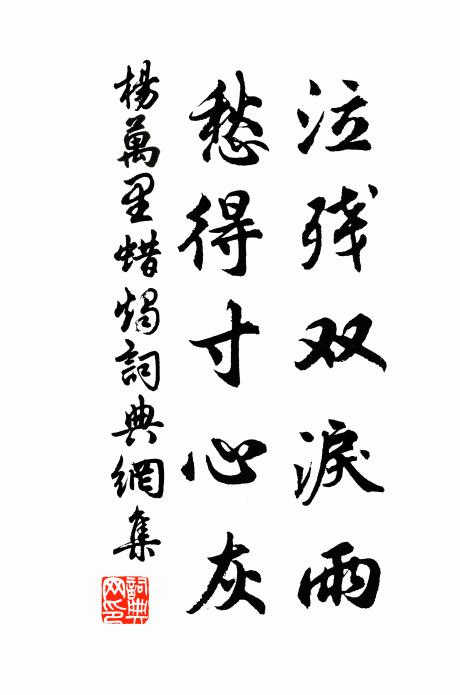 泣残双淚雨
愁得寸心灰
楊萬里蜡燭詞典網集
詞典網印